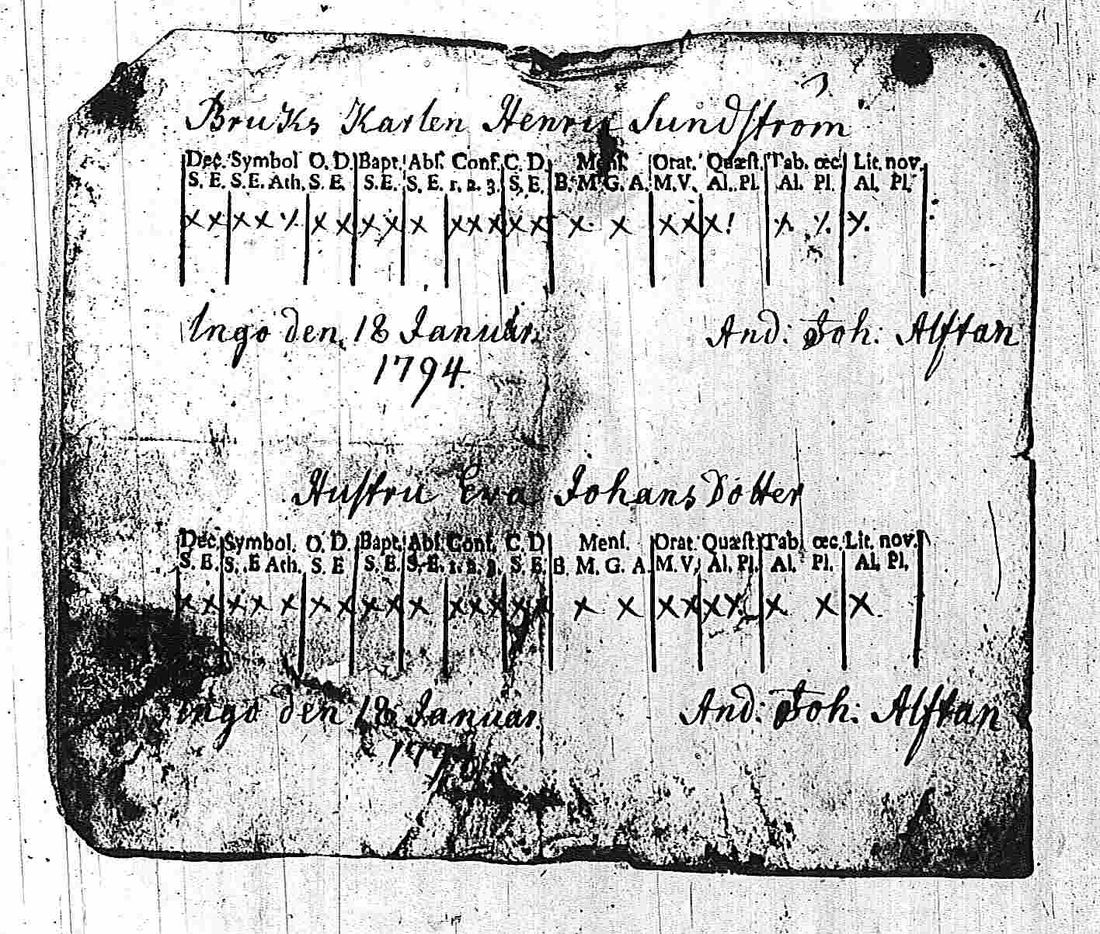 Bruks Karlen Henric Sundström
Dec. Symbol O. D. Bapt. Abſ. Conf. C. D. Menſ. Orat. Quæſt. Tab. œc. Lit. nov.
S. E. S. E. Ath. S. E. S. E. S. E. 1. 2. 3. S. E. B. M. G. A. M. V. Al. Pl. Al. Pl. Al. Pl.
x x x x x x x x x x x x x x x x x x x x x ! x x x
Ingo den 18 Januar. And: Joh: Alftan
1794.
Huſtru Eva Johans Dotter
Dec. Symbol. O. D. Bapt. Abſ. Conf. C. D. Menſ. Orat. Quæſt. Tab. œc. Lit. nov.
S. E. S. E Ath. S. E S. E. S. E. 1. 2. 3. S. E. B. M. G. A. M. V. Al. Pl. Al. Pl. Al. Pl.
x x x x x x x x x x x x x x x x x x x x x x x x x
Ingo den 18 Januar And: Joh: Alftan